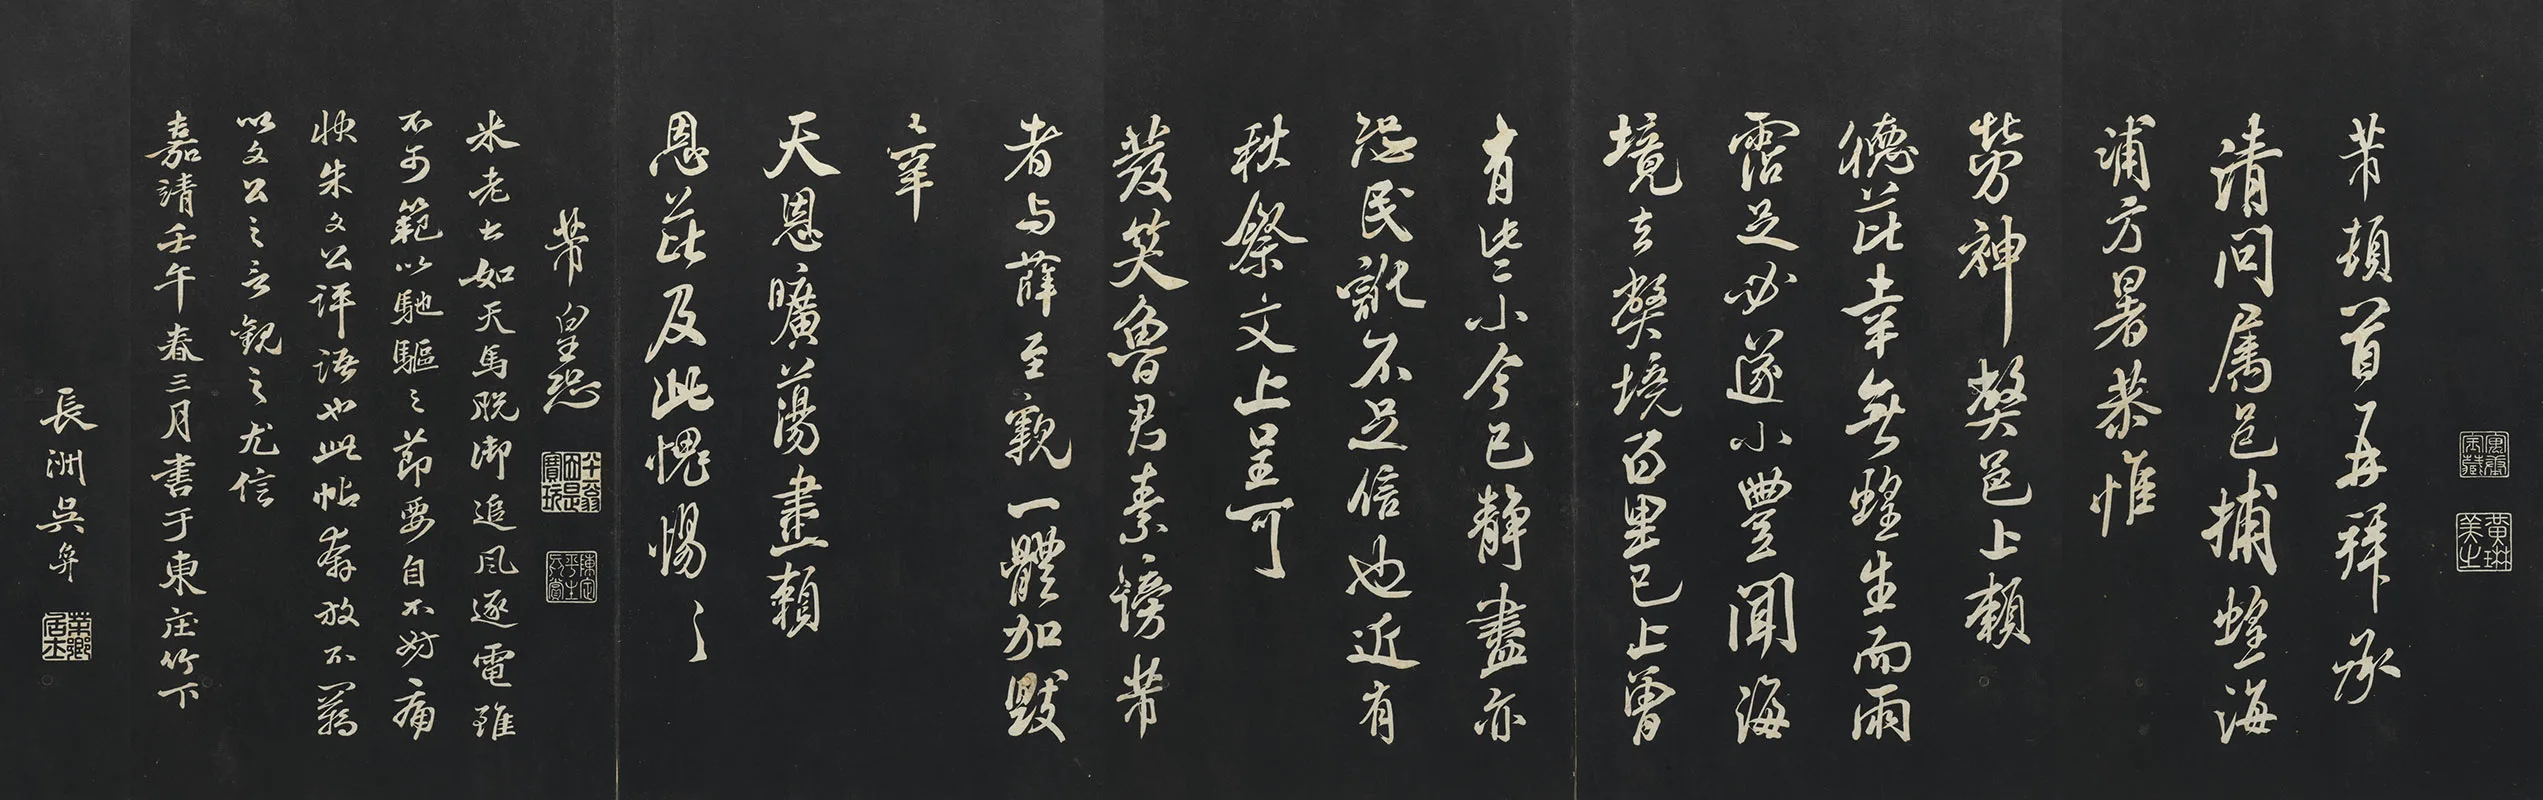 芾頓首再拜承
清問属邑捕蝗海
浦方暑恭惟
勞神獘邑上賴
德芘幸無蝗生而雨
霑足必遂小豐聞海
境去獘境百里已上曾
有些小今已靜盡亦
恐民訛不足信也近有
秋祭文上呈可
發笑魯君素謗芾
者与薛至親一體加毀
幸
天恩曠蕩盡賴
恩芘及此愧惕〻
芾皇恐
米老書如天馬脫御追風逐電雖
不可範以馳驅之節要自不妨痛
快朱文公評語也此帖奔放不羈
以文公之言觀之尤信
嘉靖壬午春三月書于東庄竹下
長洲吳奕
黃琳
美之